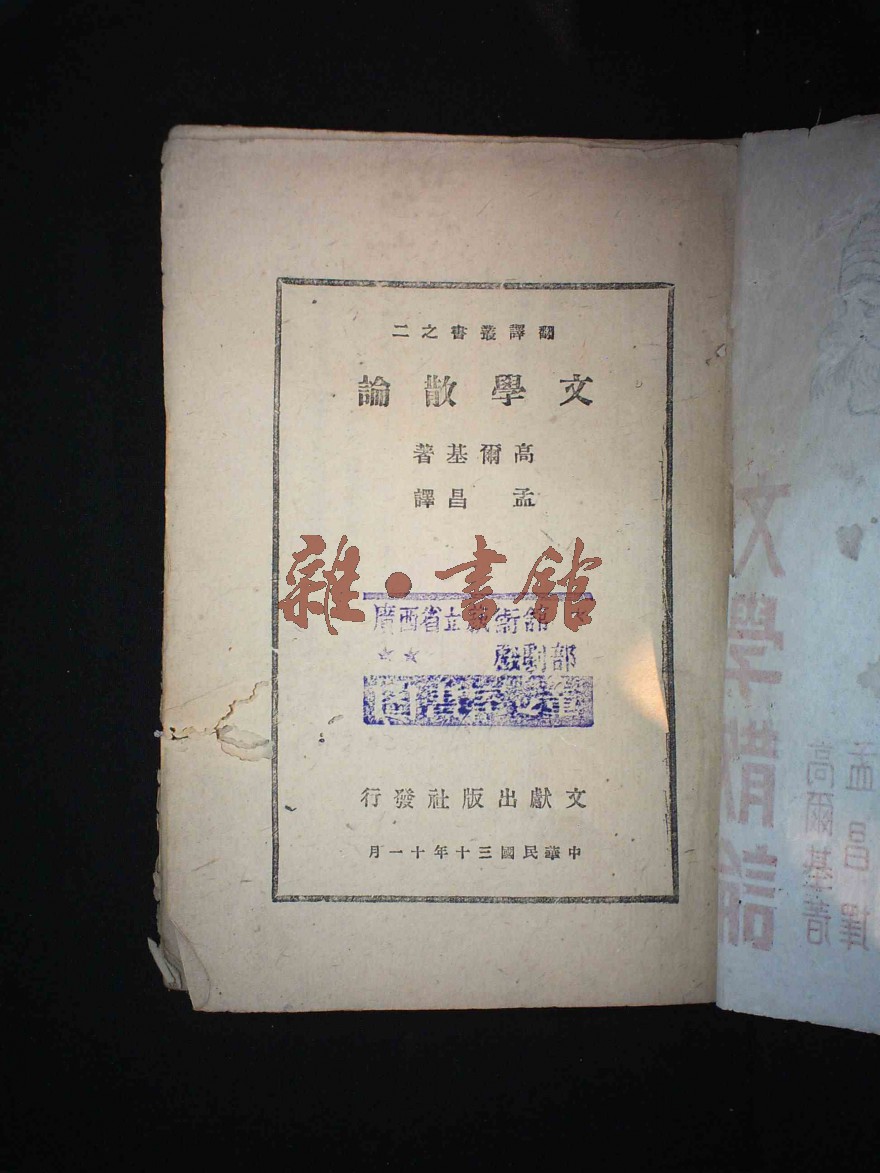 翻譯叢書之二
文學散論
高爾基著
孟昌譯
雜·書館
廣西省立藝術館
戲劇部
文獻出版社發行
中華民國三十年十一月
文學散論
高爾基著
孟昌譯